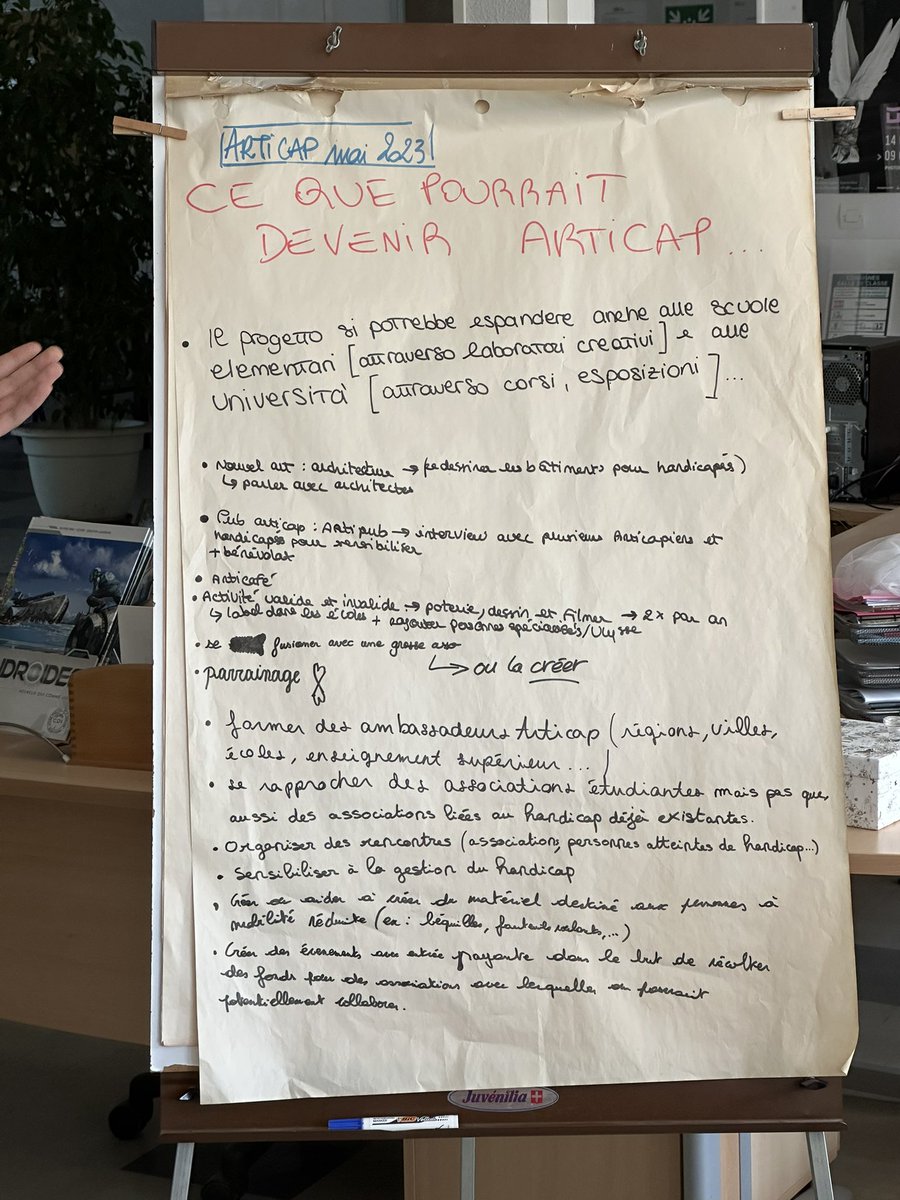 ARTICAP mai 2023
CE QUE POURRAIT
DEVENIR ARTICAP...
• Il progetto si potrebbe espandere anche alle scuole
elementari [attraverso laboratori creativi] e alle
università [attraverso corsi, esposizioni]...
• Nouvel art : architecture → (redessiner les bâtiments pour handicapés)
↳ parler avec architectes
• Pub articap : Artipub → interview avec plusieurs Articapiens et
handicapés pour sensibiliser
+ bénévolat
• Articafé
• Activité valide et invalide → poterie, dessin et filmer → 2x par an
↳ label dans les écoles + rajouter personnes spécialisés/Ulysse
• se fusioner avec une grosse asso
↳ ou la créer
• parrainage
• former des ambassadeurs Articap (régions, villes,
écoles, enseignement supérieur...)
• se rapprocher des associations étudiantes mais pas que,
aussi des associations liées au handicap déjà existantes.
• Organiser des rencontres (association, personnes atteintes de handicap...)
• Sensibiliser à la gestion du handicap
• Créer ou aider à créer du matériel destiné aux personnes à
mobilité réduite (ex : béquilles, fauteuils roulants,...)
• Créer des évènements avec entrée payante dans le but de récolter
des fonds pour des associations avec lesquelles on pourrait
potentiellement collaborer.
Juvénilia
BIC
DROIDE
14
09